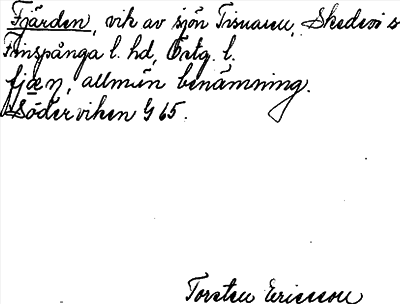 Fjärden, vik av sjön Tisnaren, Skedevi s
Finspånga l. hd, Östg. l.
fjæn, allmän benämning.
Söderviken G 65.
Torsten Ericsson